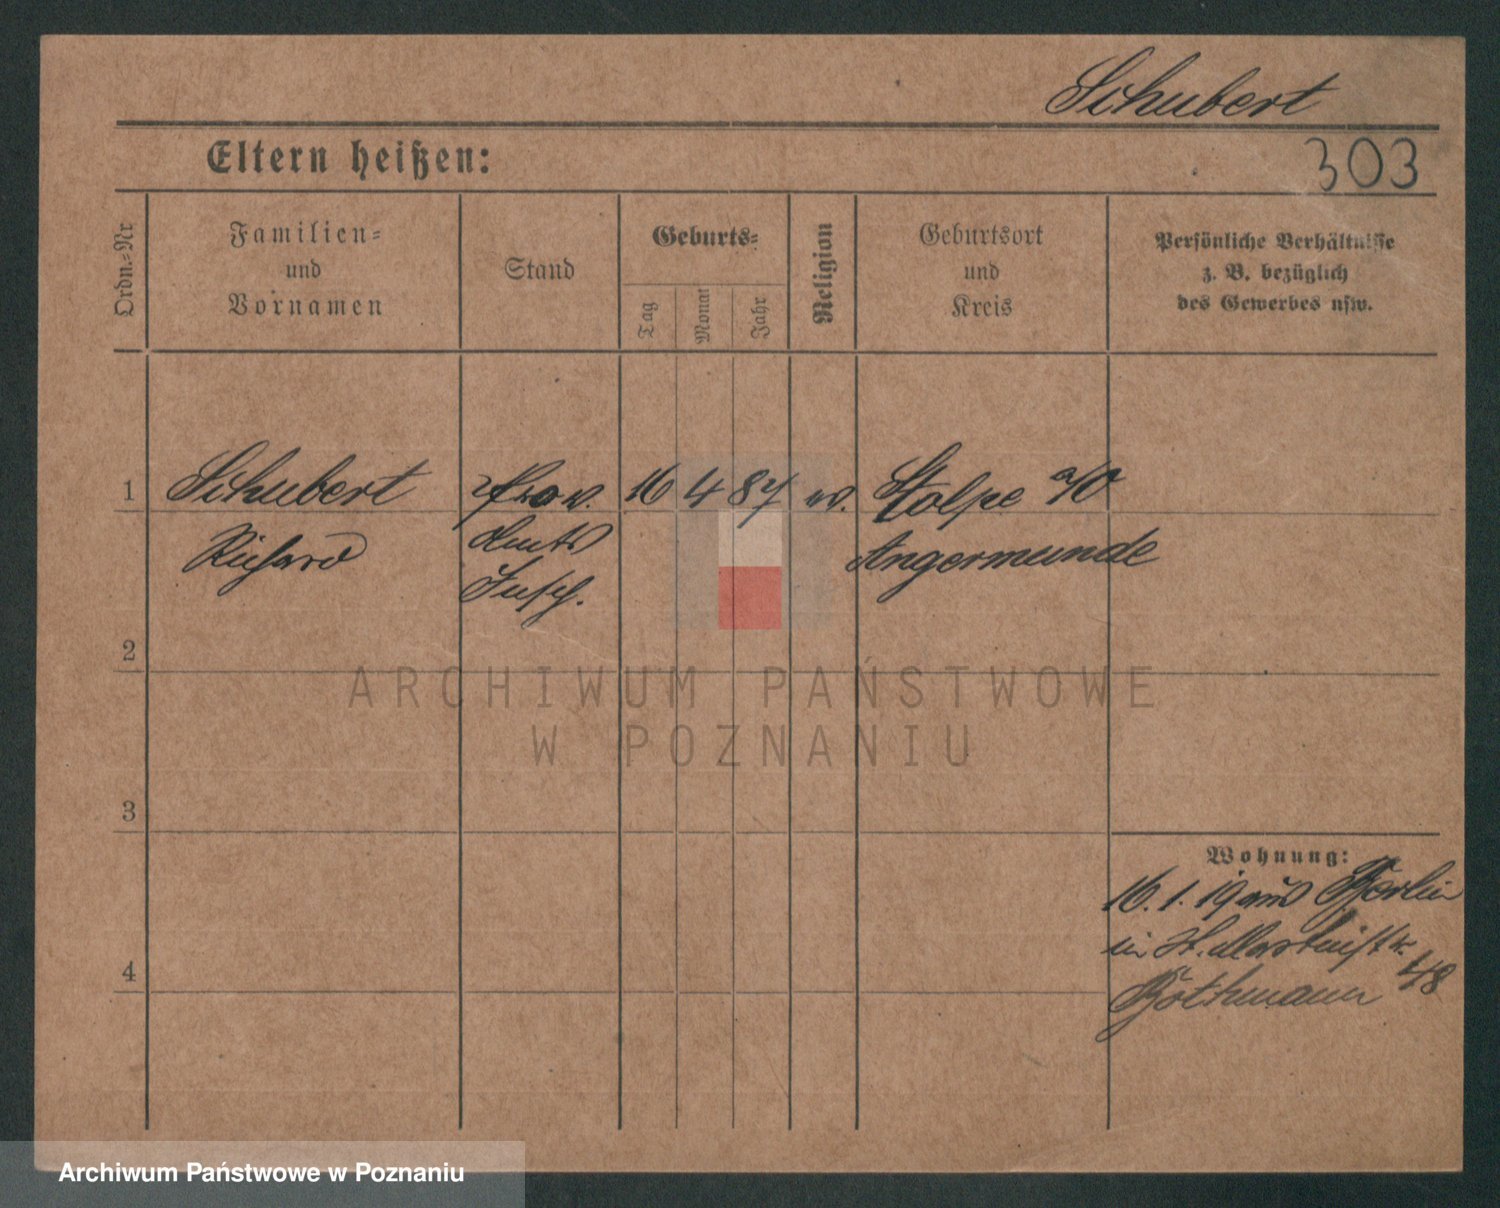 Schubert
Eltern heißen:
303
Ordn.-Nr
Familien-
und
Vornamen
Stand
Geburts-
Tag
Monat
Jahr
Religion
Geburtsort
und
Kreis
Persönliche Verhältnisse
z. B. bezüglich
des Gewerbes usw.
1
Schubert
16 4 87
Stolpe a/O
Richard
Angermunde
2
3
4
Wohnung:
16. 1. 19 aus Berlin
in St. Martinstr.
48
Bothmann
ARCHIWUM PAŃSTWOWE
W POZNANIU
Archiwum Państwowe w Poznaniu